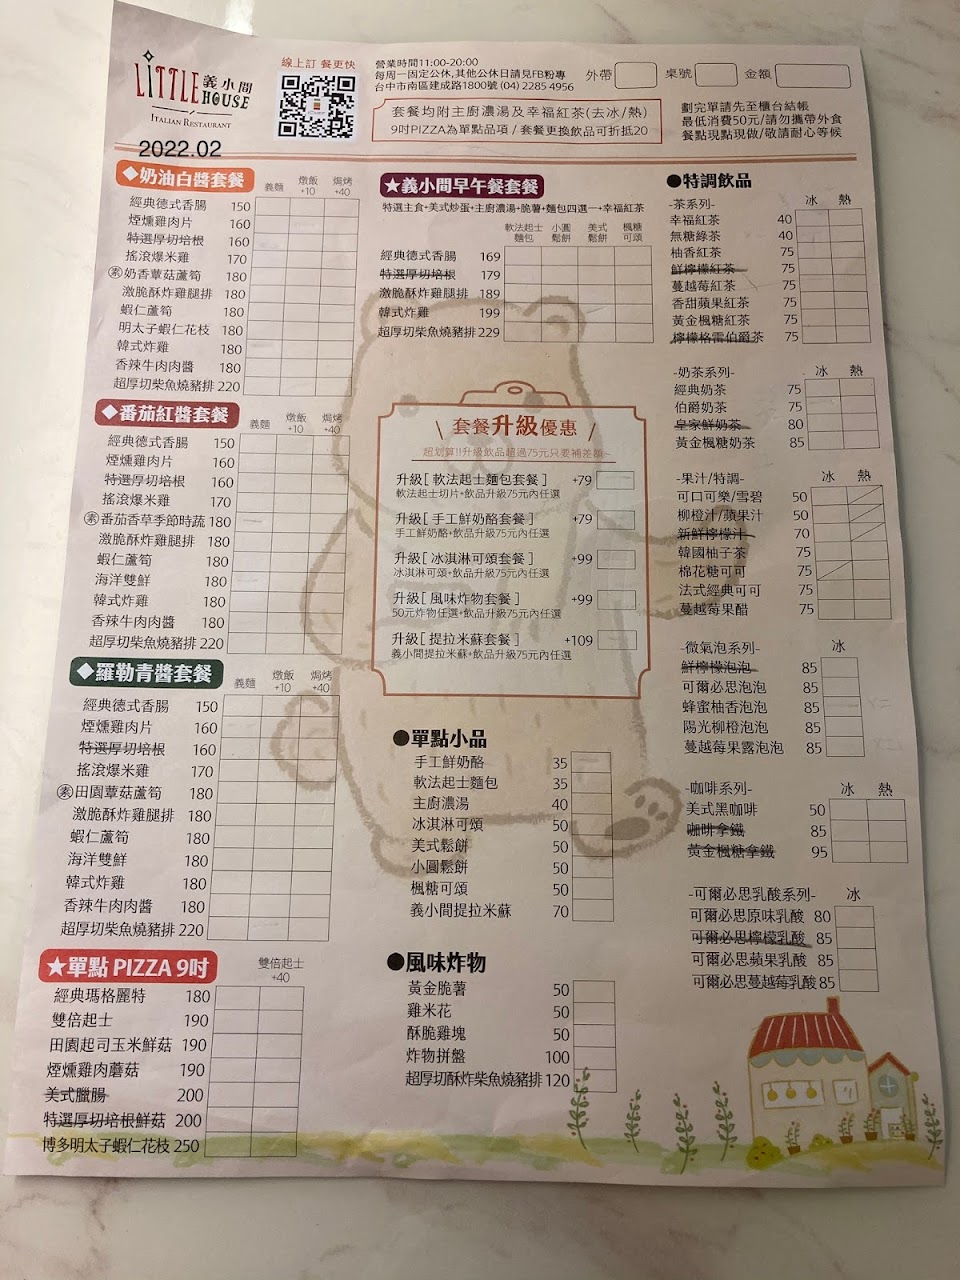 LiTTLE 義小間
HOUSE
ITALIAN RESTAURANT
2022.02
線上訂 餐更快
營業時間11:00-20:00
每周一固定公休,其他公休日請見FB粉專
台中市南區建成路1800號 (04) 2285 4956
外帶
桌號
金額
套餐均附主廚濃湯及幸福紅茶(去冰/熱)
9吋PIZZA為單點品項 / 套餐更換飲品可折抵20
劃完單請先至櫃台結帳
最低消費50元/請勿攜帶外食
餐點現點現做/敬請耐心等候
◆奶油白醬套餐 義麵 燉飯+10 焗烤+40
經典德式香腸 150
煙燻雞肉片 160
特選厚切培根 160
搖滾爆米雞 170
素 奶香蕈菇蘆筍 180
激脆酥炸雞腿排 180
蝦仁蘆筍 180
明太子蝦仁花枝 180
韓式炸雞 180
香辣牛肉肉醬 180
超厚切柴魚燒豬排 220
◆番茄紅醬套餐 義麵 燉飯+10 焗烤+40
經典德式香腸 150
煙燻雞肉片 160
特選厚切培根 160
搖滾爆米雞 170
素 番茄香草季節時蔬 180
激脆酥炸雞腿排 180
蝦仁蘆筍 180
海洋雙鮮 180
韓式炸雞 180
香辣牛肉肉醬 180
超厚切柴魚燒豬排 220
◆羅勒青醬套餐 義麵 燉飯+10 焗烤+40
經典德式香腸 150
煙燻雞肉片 160
特選厚切培根 160
搖滾爆米雞 170
素 田園蕈菇蘆筍 180
激脆酥炸雞腿排 180
蝦仁蘆筍 180
海洋雙鮮 180
韓式炸雞 180
香辣牛肉肉醬 180
超厚切柴魚燒豬排 220
★單點 PIZZA 9吋 雙倍起士+40
經典瑪格麗特 180
雙倍起士 190
田園起司玉米鮮菇 190
煙燻雞肉蘑菇 190
美式臘腸 200
特選厚切培根鮮菇 200
博多明太子蝦仁花枝 250
★義小間早午餐套餐
特選主食+美式炒蛋+主廚濃湯+脆薯+麵包四選一+幸福紅茶
軟法起士麵包 小圓鬆餅 美式鬆餅 楓糖可頌
經典德式香腸 169
特選厚切培根 179
激脆酥炸雞腿排 189
韓式炸雞 199
超厚切柴魚燒豬排 229
套餐升級優惠
超划算!!升級飲品超過75元只要補差額~
升級[ 軟法起士麵包套餐 ] +79
軟法起士切片+飲品升級75元內任選
升級[ 手工鮮奶酪套餐 ] +79
手工鮮奶酪+飲品升級75元內任選
升級[ 冰淇淋可頌套餐 ] +99
冰淇淋可頌+飲品升級75元內任選
升級[ 風味炸物套餐 ] +99
50元炸物任選+飲品升級75元內任選
升級[ 提拉米蘇套餐 ] +109
義小間提拉米蘇+飲品升級75元內任選
●單點小品
手工鮮奶酪 35
軟法起士麵包 35
主廚濃湯 40
冰淇淋可頌 50
美式鬆餅 50
小圓鬆餅 50
楓糖可頌 50
義小間提拉米蘇 70
●風味炸物
黃金脆薯 50
雞米花 50
酥脆雞塊 50
炸物拼盤 100
超厚切酥炸柴魚燒豬排 120
●特調飲品
-茶系列- 冰 熱
幸福紅茶 40
無糖綠茶 40
柚香紅茶 75
鮮檸檬紅茶 75
蔓越莓紅茶 75
香甜蘋果紅茶 75
黃金楓糖紅茶 75
檸檬格雷伯爵茶 75
-奶茶系列- 冰 熱
經典奶茶 75
伯爵奶茶 75
皇家鮮奶茶 80
黃金楓糖奶茶 85
-果汁/特調- 冰 熱
可口可樂/雪碧 50
柳橙汁/蘋果汁 50
新鮮檸檬汁 70
韓國柚子茶 75
棉花糖可可 75
法式經典可可 75
蔓越莓果醋 75
-微氣泡系列- 冰
鮮檸檬泡泡 85
可爾必思泡泡 85
蜂蜜柚香泡泡 85
陽光柳橙泡泡 85
蔓越莓果露泡泡 85
-咖啡系列- 冰 熱
美式黑咖啡 50
咖啡拿鐵 85
黃金楓糖拿鐵 95
-可爾必思乳酸系列- 冰
可爾必思原味乳酸 80
可爾必思檸檬乳酸 85
可爾必思蘋果乳酸 85
可爾必思蔓越莓乳酸 85